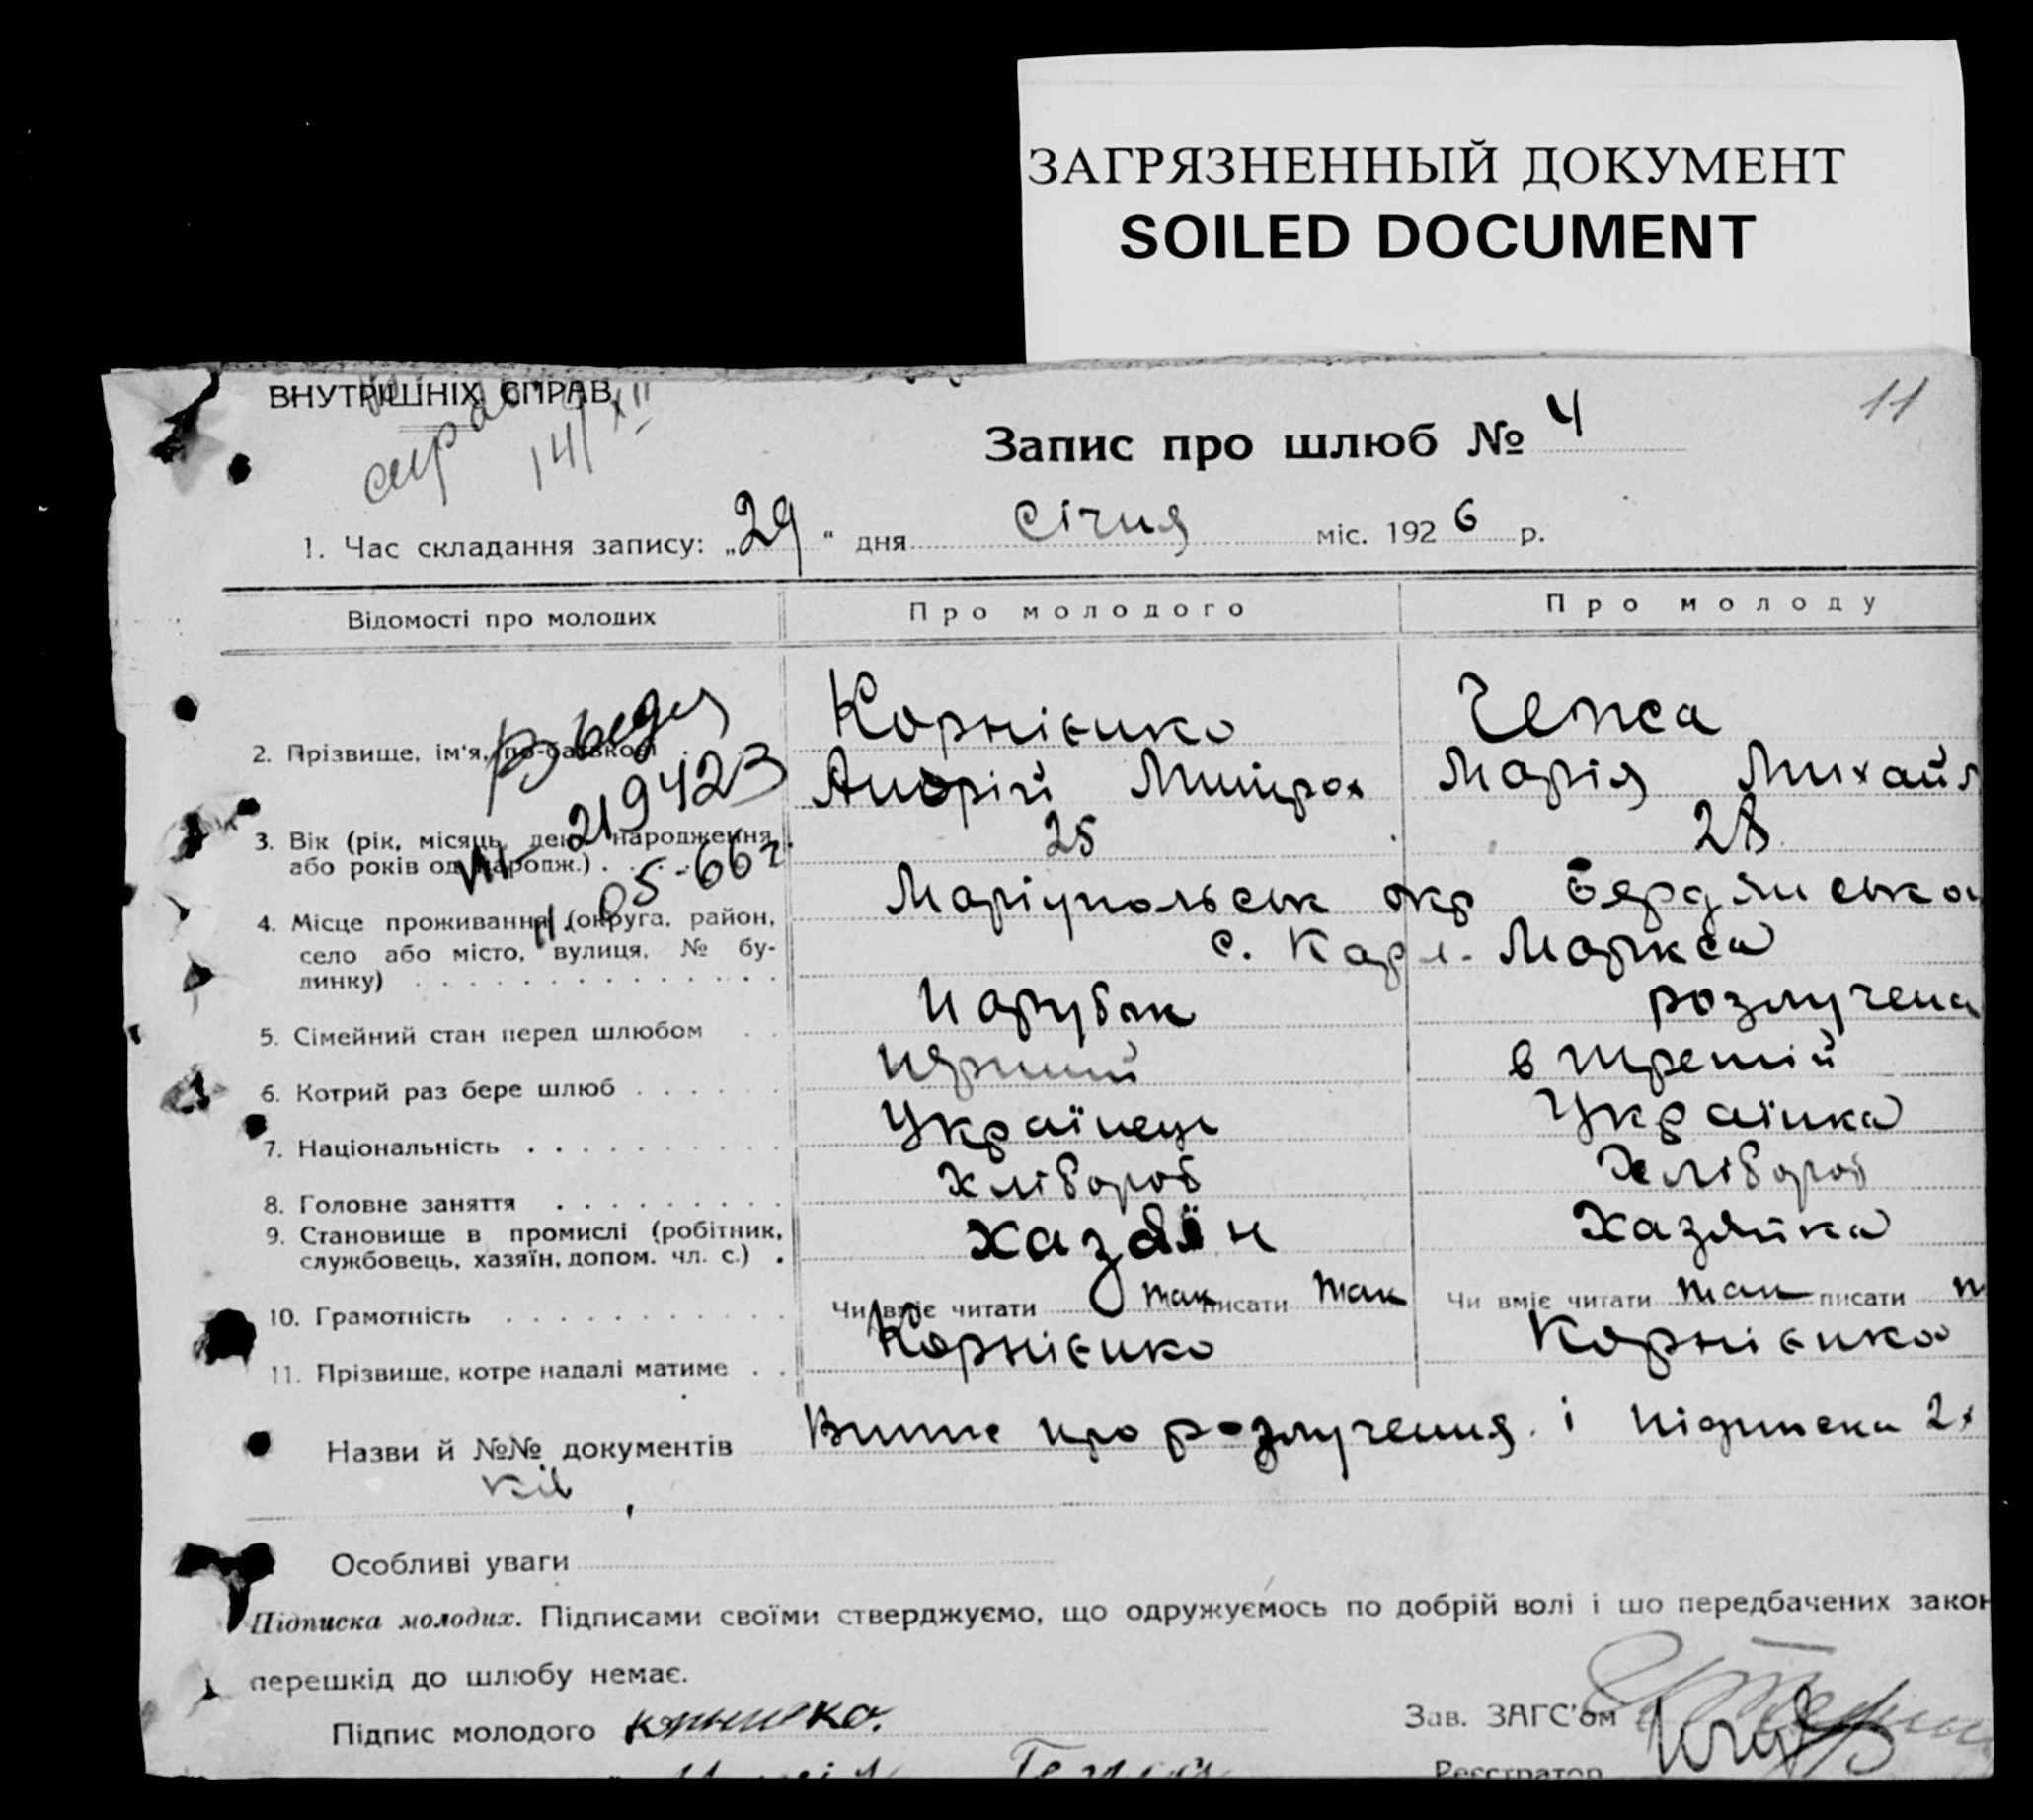 ЗАГРЯЗНЕННЫЙ ДОКУМЕНТ
SOILED DOCUMENT
ВНУТРІШНІХ СПРАВ
14/XII
11
Запис про шлюб № 4
1. Час складання запису: „29“ дня січня міс. 1926 р.
Відомості про молодих Про молодого Про молоду
2. Прізвище, ім'я, по-батькові Корнієнко Чепса
Андрій Митроф Марія Михайл
219423
3. Вік (рік, місяць, день народження 25 28
або років од народж.)
05-66 г.
4. Місце проживання (округа, район, Маріупольськ окр Бердянська
село або місто, вулиця, № бу- с. Карл. Маркса
динку)
5. Сімейний стан перед шлюбом Парубок розлучена
6. Котрий раз бере шлюб перший в третій
7. Національність Українець Українка
8. Головне заняття Хлібороб Хлібороб
9. Становище в промислі (робітник, хазяїн Хазяйка
службовець, хазяїн, допом. чл. с.)
10. Грамотність Чи вміє читати так писати так Чи вміє читати так писати т
11. Прізвище, котре надалі матиме Корнієнко Корнієнко
Назви й №№ документів про розлучення і підписка 2х
Особливі уваги
Підписка молодих. Підписами своїми стверджуємо, що одружуємось по добрій волі і що передбачених закон
перешкід до шлюбу немає.
Підпис молодого Зав. ЗАГС'ом
Реєстратор